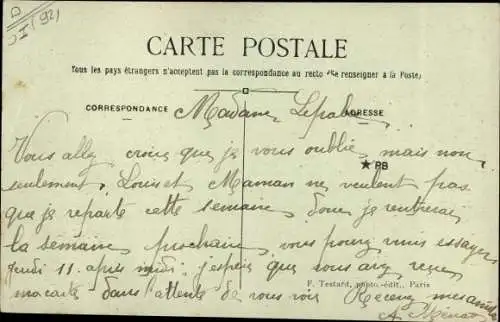 D
CARTE POSTALE
Tous les pays étrangers n'acceptent pas la correspondance au recto (Se renseigner à la Poste)
CORRESPONDANCE
ADRESSE
Madame
Vous allez croire que je vous oublie, mais non
★PB
seulement, Louis et Maman ne veulent pas
que je reparte cette semaine donc je rentrerai
la semaine prochaine, vous pourrez venir essayer
jeudi 11 après midi; j'espère que vous avez reçu
F. Testard, photo.-édit., Paris
ma carte dans attente de vous voir Recevez mes amitiés
A.